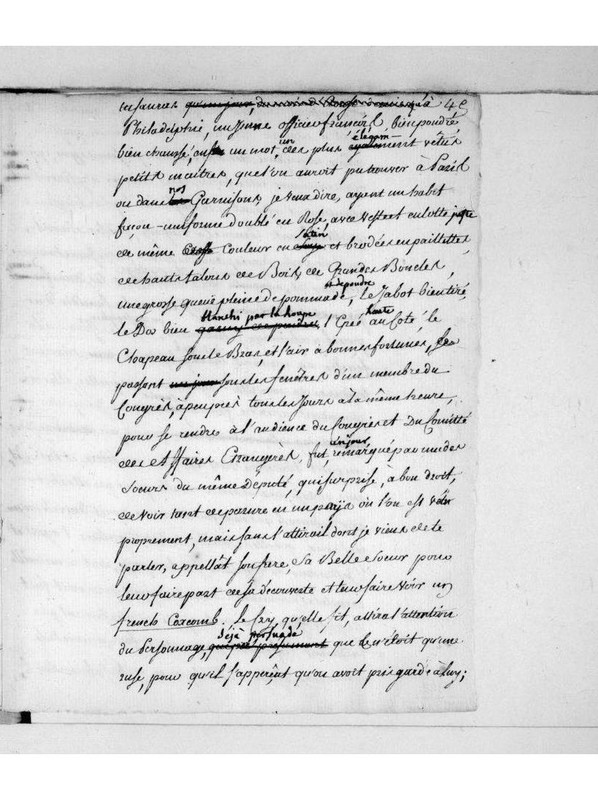 à 49
Philadelphie, un Jeune officier francois, bien poudré
bien chaussé, en un mot, un des plus élégam-ment vêtus
petits maitres, que l'on auroit pu trouver à Paris
ou dans nos Garnisons, je veux dire, ayant un habit
façon-uniforme doublé en Rose, avec veste et culotte juste
de même Couleur en satin et brodées en paillettes,
de hauts talons de Bois, de Grandes Boucles,
une grosse queüe pleine de pommade, et de poudre, le Jabot bien tiré,
le Dos bien blanchi par la houpe, l'Epée haute au Coté, le
Chapeau sous le Bras, et l'air à bonnes fortunes,
passant sous les fenêtres d'un membre du
Congrès, à peu près tous les Jours à la même heure,
pour se rendre à l'audience du Congrès et Du Comitté
des Affaires Etrangères, fut, un jour, remarqué par une des
Soeurs du même Deputé, qui surprise, à bon droit,
de voir tant de parure en un païs où l'on est vêtu
proprement, mais sans l'attirail dont je viens de te
parler, appellât son frere, Sa Belle Soeur pour
leur faire part de sa découverte et leur faire voir un
french Coxcomb. Le cry, qu'elle fit, attira l'attention
du Personnage, déjà persuadé que ce n'étoit qu'une
ruse, pour qu'il s'apperçut qu'on avoit pris garde à luy;